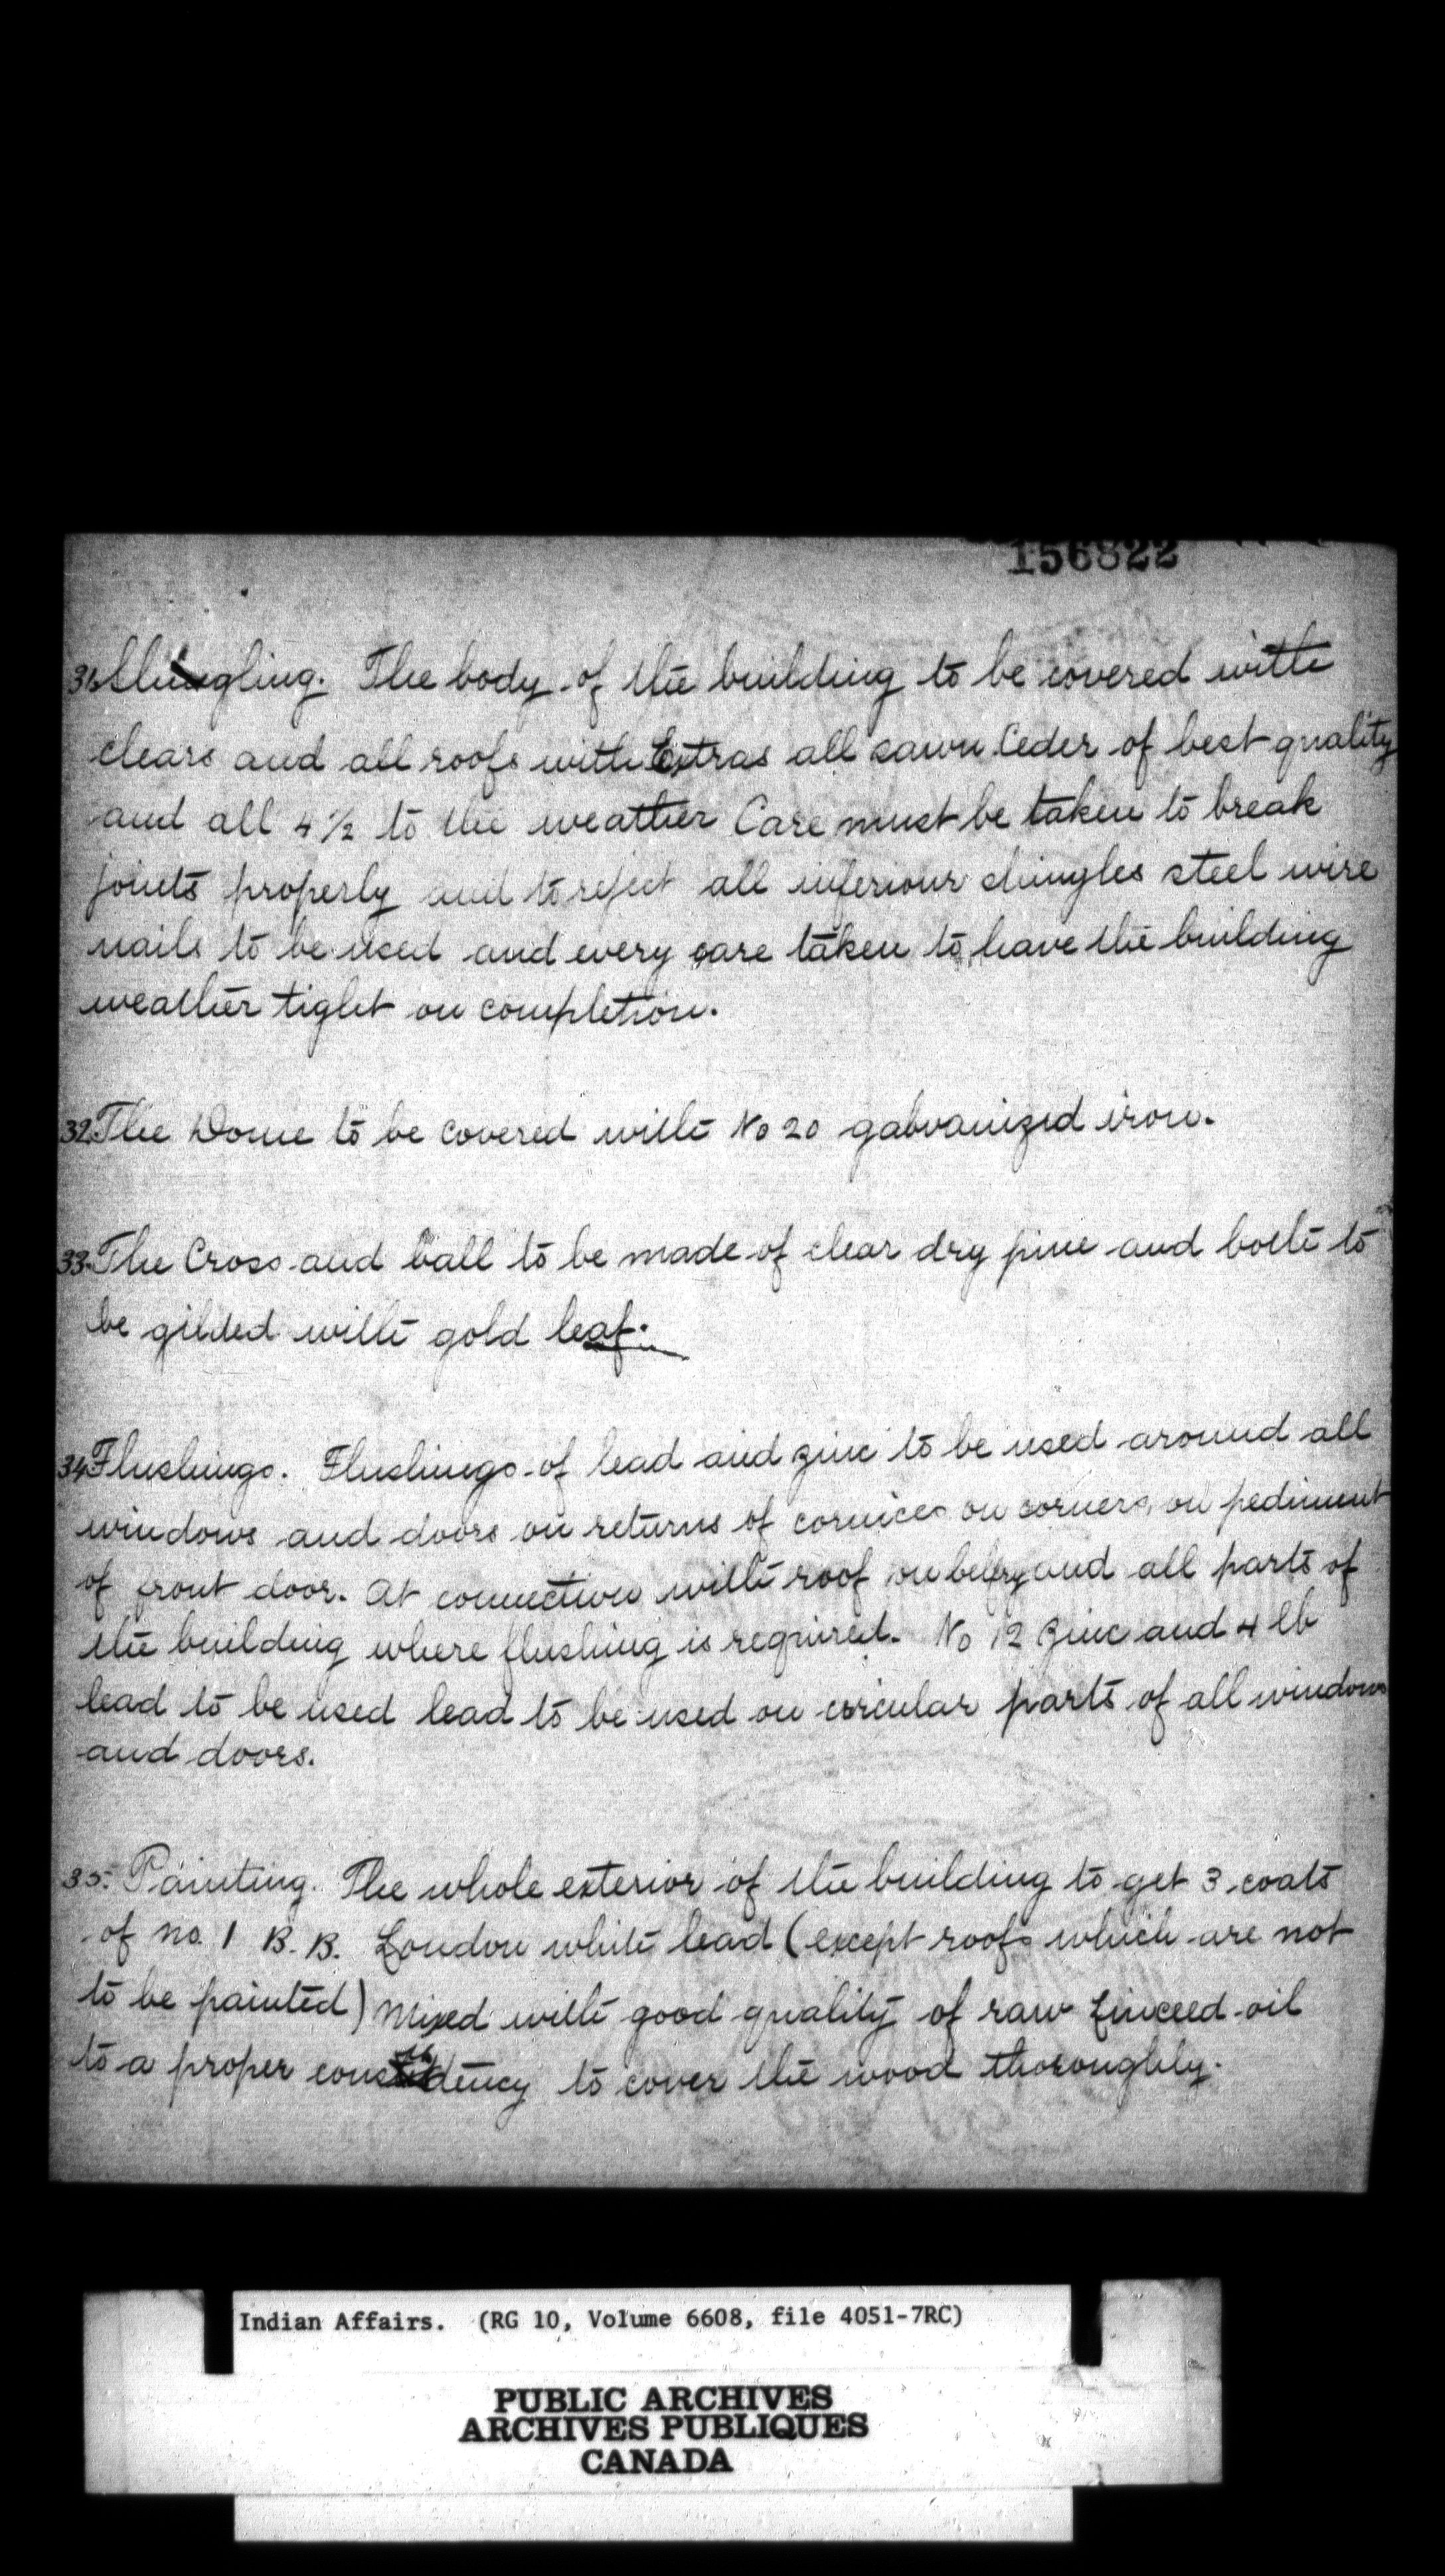 156822
31. Shingling. The body of the building to be covered with
clears and all roofs with Extras all sawn Ceder of best quality
and all 4 1/2 to the weather Care must be taken to break
joints properly and to reject all inferiour shingles steel wire
nails to be used and every care taken to have the building
weather tight on completion.
32. The Dome to be covered with No 20 galvanized iron.
33. The Cross and ball to be made of clear dry pine and both to
be gilded with gold leaf.
34. Flushings. Flushings of lead and zinc to be used around all
windows and doors on returns of cornices on corners, on pediment
of front door. At connection with roof on belfry and all parts of
the building where flushing is required. No 12 zinc and 4 lb
lead to be used lead to be used on circular parts of all windows
and doors.
35. Painting. The whole exterior of the building to get 3 coats
of no. 1 B.B. London white lead (except roofs which are not
to be painted) Mixed with good quality of raw Linceed oil
to a proper consistency to cover the wood thoroughly.
Indian Affairs. (RG 10, Volume 6608, file 4051-7RC)
PUBLIC ARCHIVES
ARCHIVES PUBLIQUES
CANADA